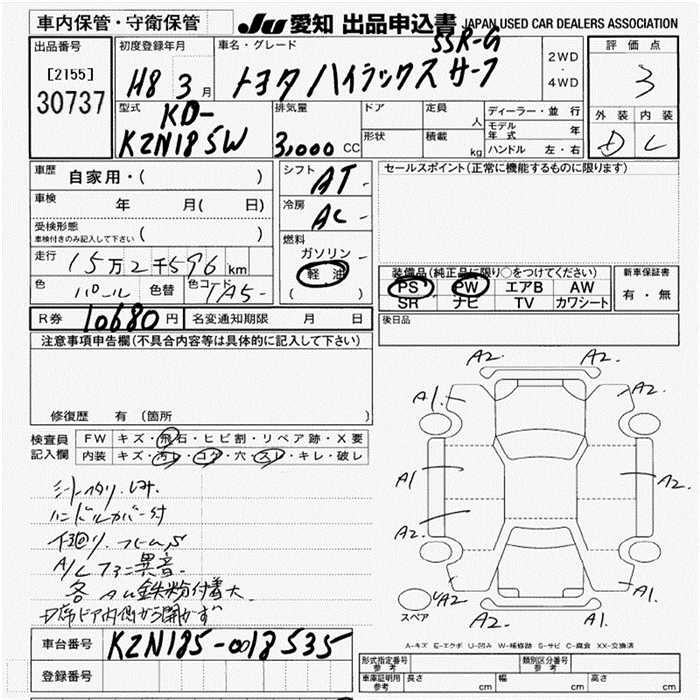 車内保管・守衛保管
JU 愛知 出品申込書 JAPAN USED CAR DEALERS ASSOCIATION
出品番号
[2155]
30737
初度登録年月
H8 3 月
車名・グレード
SSR-G
トヨタ ハイラックス サーフ
2WD
・
4WD
評価点
3
外装 内装
D C
型式
KD-
KZN185W
排気量
3,000 CC
ドア
形状
定員
人
積載
kg
ディーラー・並行
モデル年式 年
ハンドル 左・右
車歴
自家用・( )
車検
年 月( 日)
受検形態
車検付きのみ記入して下さい ( )
走行
15万2千596 km
色 パール 色替 色コード TA5-
シフト
AT
冷房
AC
燃料
ガソリン
軽油
( )
セールスポイント(正常に機能するものに限ります)
装備品(純正品に限り○をつけてください)
PS PW エアB AW
SR ナビ TV カワシート
新車保証書
有・無
R券 10680 円 名変通知期限 月 日
後日品
注意事項申告欄(不具合内容等は具体的に記入して下さい)
修復歴 有 (箇所
検査員
記入欄
FW キズ・飛石・ヒビ割・リペア跡・X要
内装 キズ・汚レ・コゲ・穴・スレ・キレ・破レ
ハンドルカバー付
A/C 異音
各 鉄粉付着大
D席ドア内側から開かず
A2. A2.
A1. A2.
A1 A2.
A2.
A2 A1.
A2. A1.
スペア
A-キズ E-エクボ U-凹み W-補修跡 S-サビ C-腐食 XX-交換済
車台番号 KZN185-0018535
登録番号
形式指定番号
参考
類別区分番号
参考
車庫証明用
参考
長さ cm 幅 cm 高さ cm